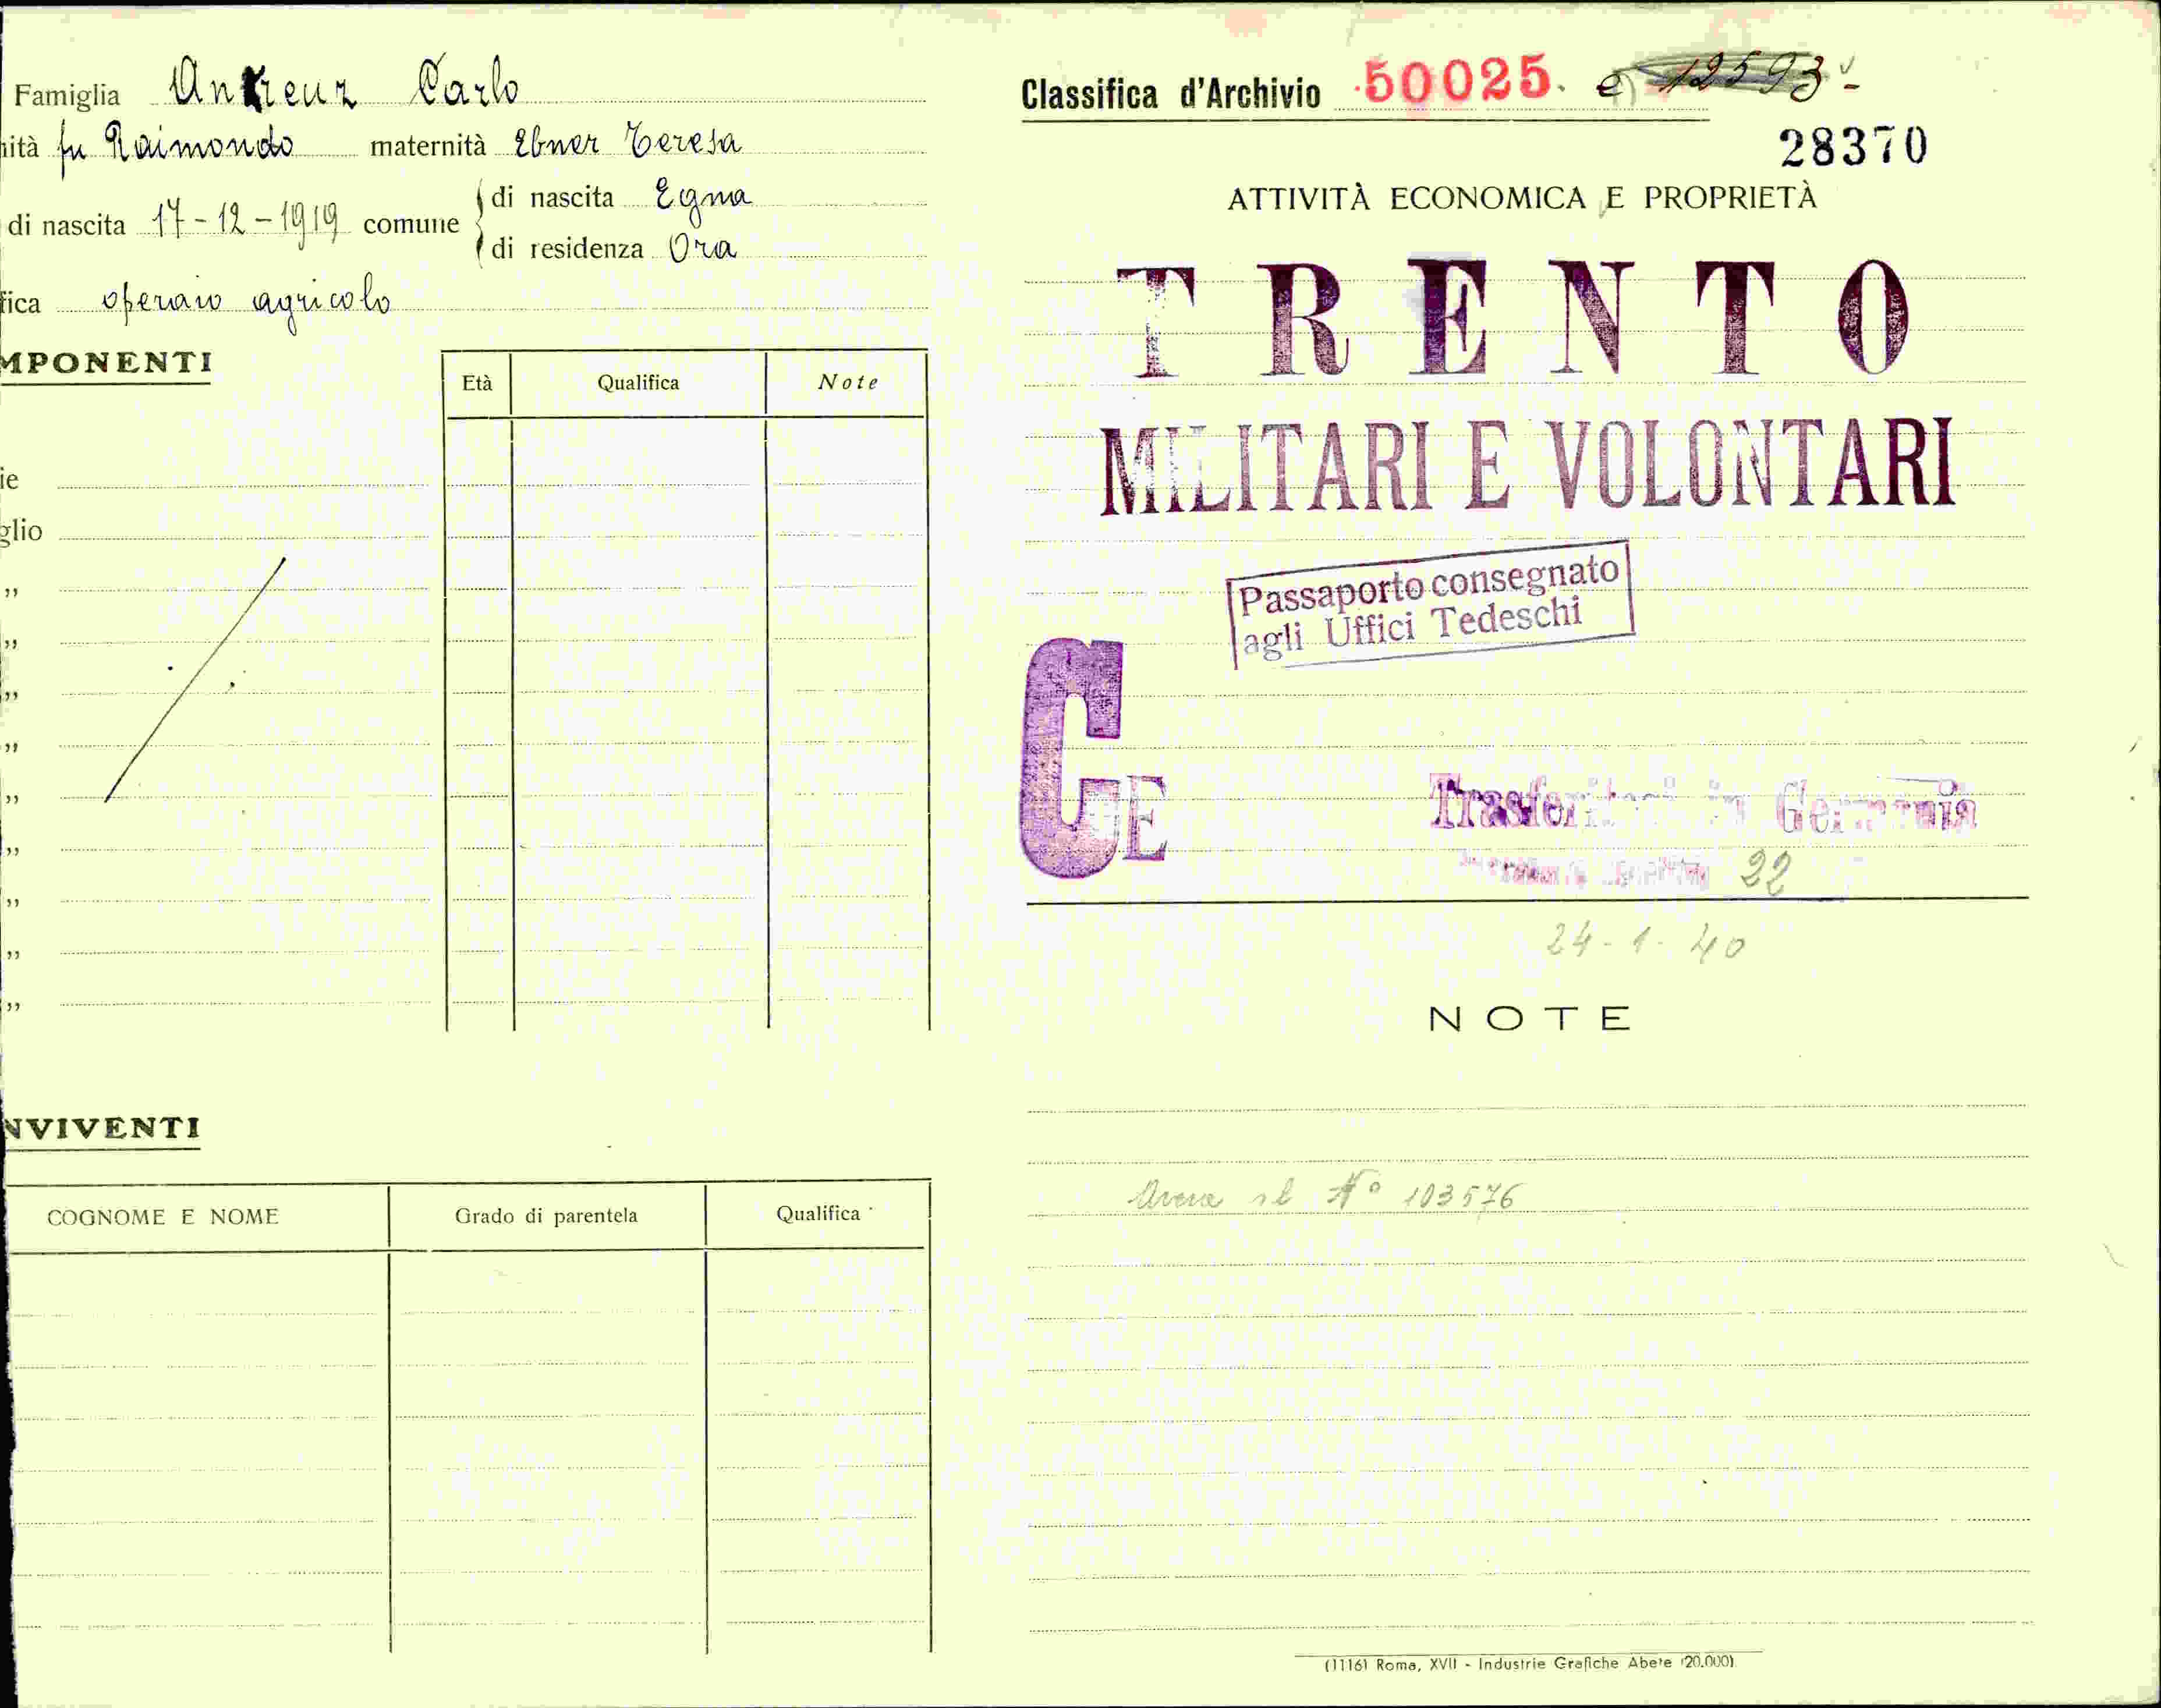 Famiglia Antreuz Carlo
ità fu Raimondo maternità Ebner Teresa
di nascita 17-12-1919 comune di nascita Egna
di residenza Ora
fica operaio agricolo
MPONENTI
Età Qualifica Note
ie
glio
"
"
"
"
"
"
"
"
"
NVIVENTI
COGNOME E NOME Grado di parentela Qualifica
Classifica d'Archivio 50025. e 12593-
28370
ATTIVITÀ ECONOMICA E PROPRIETÀ
TRENTO
MILITARI E VOLONTARI
Passaporto consegnato
agli Uffici Tedeschi
CE
Trasferitosi in Germania
22
24-1-40
NOTE
N° 103576
(1116) Roma, XVII - Industrie Grafiche Abete (20.000)